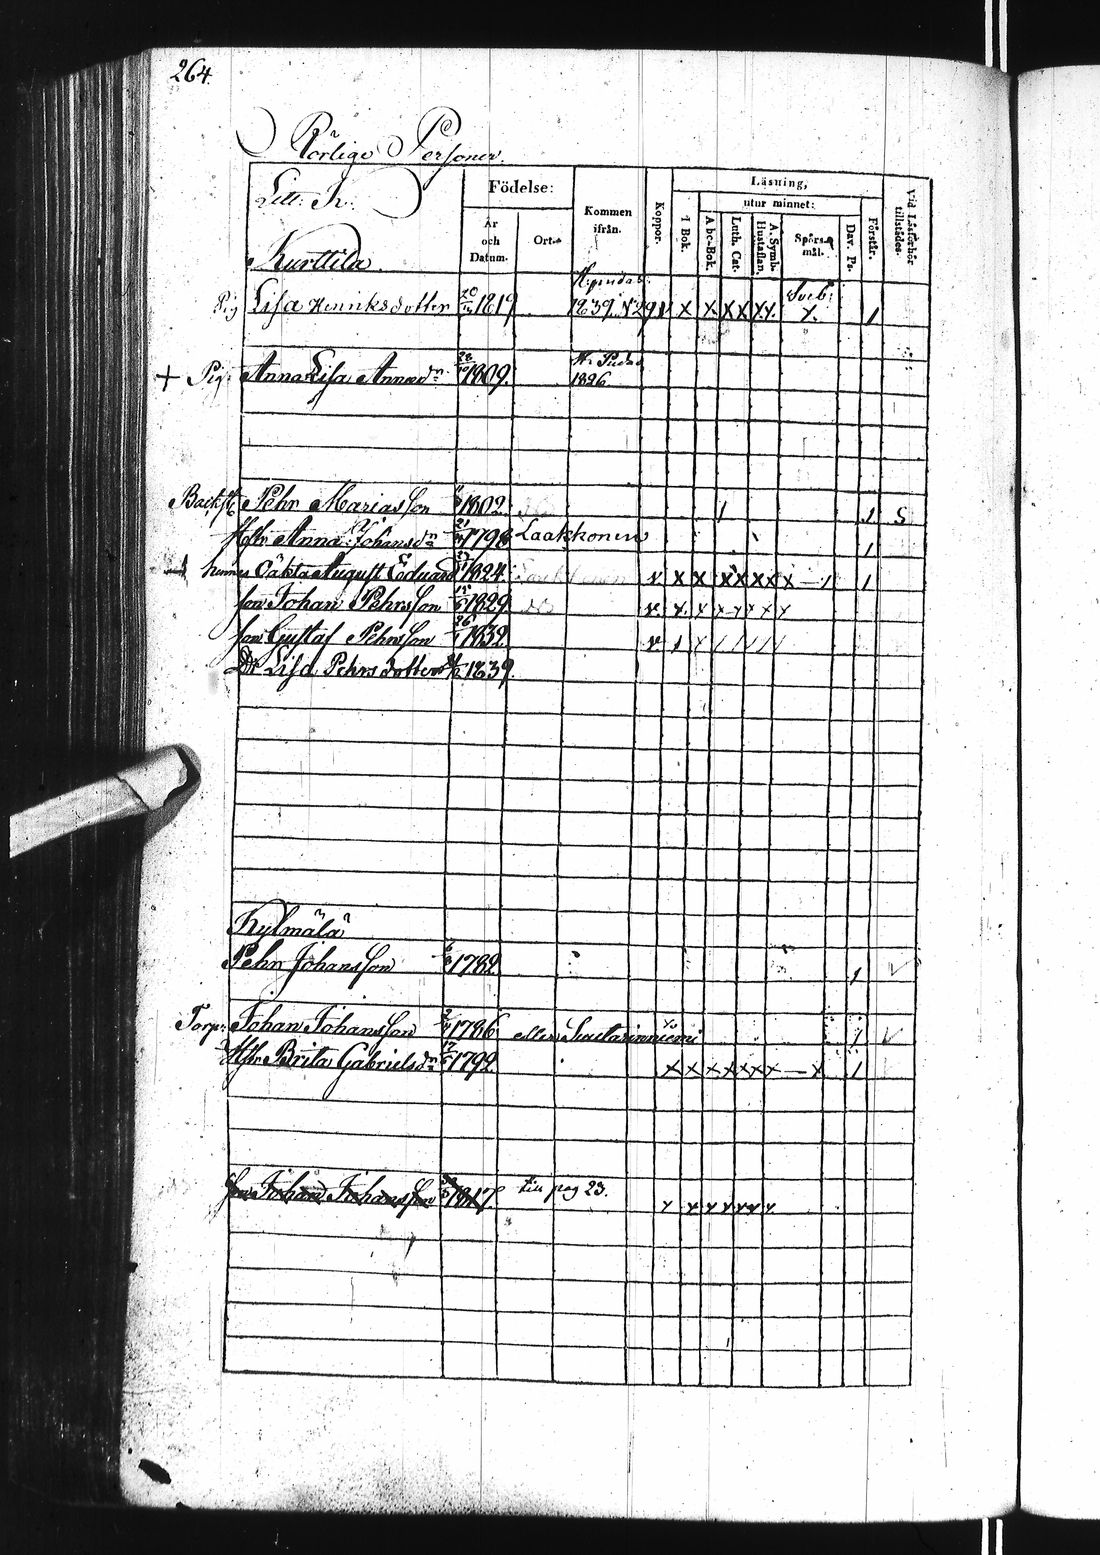 264.
Rörlige Personer.
Litt. K.
Födelse:
År och Datum.
Ort.
Kommen ifrån.
Koppor.
Läsning,
utur minnet:
I Bok.
Abc-Bok.
Luth. Cat.
A. Symb. Hustaflan.
Spörsmål.
Dav. Ps.
Förstår.
Vid Läsförhör tillstädes.
Kurttila
Pig Lisa Henriksdotter 1819 1839 N 29 v x x x x x x. Sveb: x. 1
+ Pig: Anna Lisa Annaedn 28/10 1809. 1826
Backst. Pehr Mariasson 1802 1 1 5
Hstr Anna Johansdn 21 1798 Laakkonen 1
hennes Oäkta August Eduard 27 1824 v x x x x x x x x – 1 1
son Johan Pehrsson 1829 v x x x x x x x
son Gustaf Pehrsson 26/1 1832 v 1 / / / / / /
Dr Lisa Pehrsdotter 1839.
Kylmälä
Pehr Johansson 1782 1
Torp: Johan Johansson 1786 eller 1
Hstr Brita Gabrielsdn 17 1792 x x x x x x x – x 1
son Johan Johansson 1817. till pag 23. x x x x x x x